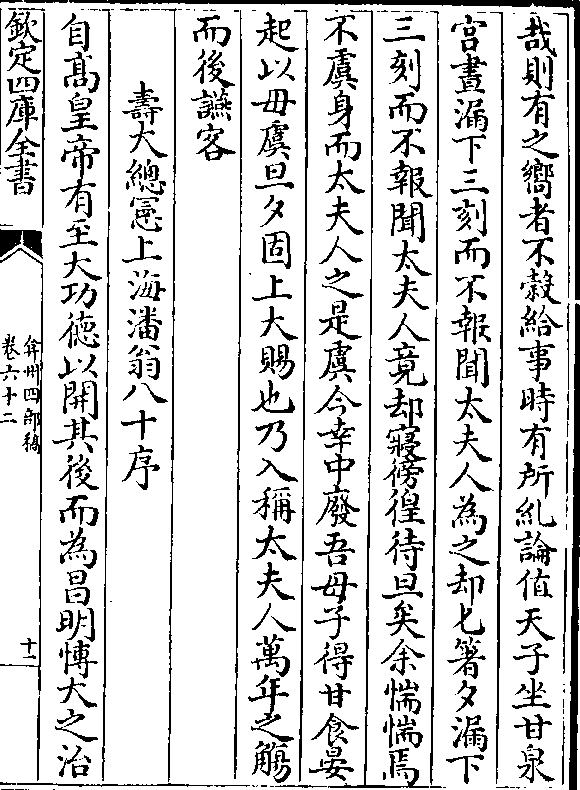 哉則有之嚮者不穀給事時有所糺論值天子坐甘泉
宫晝漏下三刻而不報聞太夫人為之却匕箸夕漏下
三刻而不報聞太夫人竟却寢徬徨待旦矣余惴惴焉
不虞身而太夫人之是虞今幸中廢吾母子得甘食晏
起以毋虞旦夕固上大賜也乃入稱太夫人萬年之觴
而後讌客
壽大總憲上海潘翁八十序
自髙皇帝有至大功德以開其後而為昌明博大之治
欽定四庫全書
弇州四部稿
卷六十二
十二